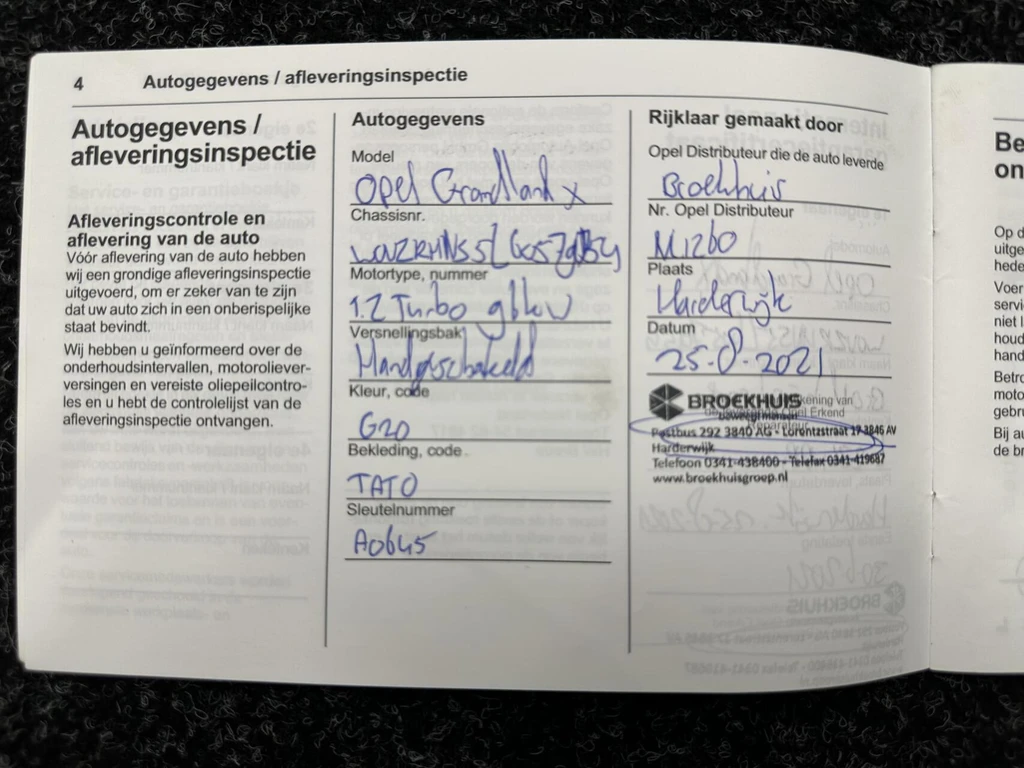 4 Autogegevens / afleveringsinspectie
Autogegevens /
afleveringsinspectie
Afleveringscontrole en
aflevering van de auto
Vóór aflevering van de auto hebben
wij een grondige afleveringsinspectie
uitgevoerd, om er zeker van te zijn
dat uw auto zich in een onberispelijke
staat bevindt.
Wij hebben u geïnformeerd over de
onderhoudsintervallen, motoroliever-
versingen en vereiste oliepeilcontro-
les en u hebt de controlelijst van de
afleveringsinspectie ontvangen.
Autogegevens
Model
Opel Grandland x
Chassisnr.
Motortype, nummer
1.2 Turbo
Versnellingsbak
Handgeschakeld
Kleur, code
G20
Bekleding, code
TATO
Sleutelnummer
A0645
Rijklaar gemaakt door
Opel Distributeur die de auto leverde
Broekhuis
Nr. Opel Distributeur
M1260
Plaats
Harderwijk
Datum
25-8-2021
BROEKHUIS
Postbus 292 3840 AG - Lorentzstraat 19 3846 AV
Harderwijk
Telefoon 0341-438400 - Telefax 0341-419687
www.broekhuisgroep.nl
Be
on
Op d
uitge
hede
Voer
servi
niet l
houd
hand
Betro
moto
gebru
Bij au
de br